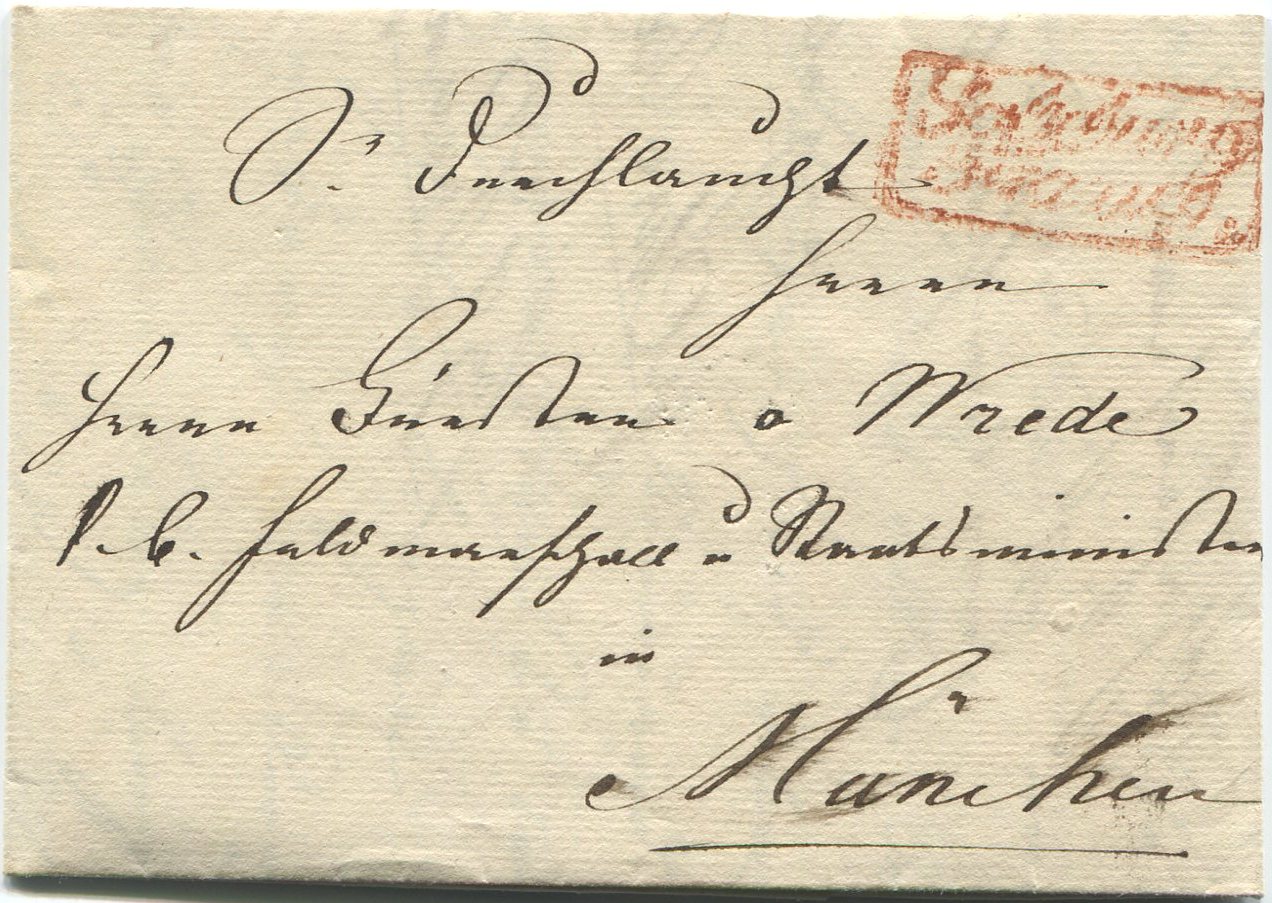 Sr Durchlaucht
Salzburg
Franco.
Herrn
Herrn Fürsten v Wrede
k. b. Feldmarschall u Staatsminister
in
München